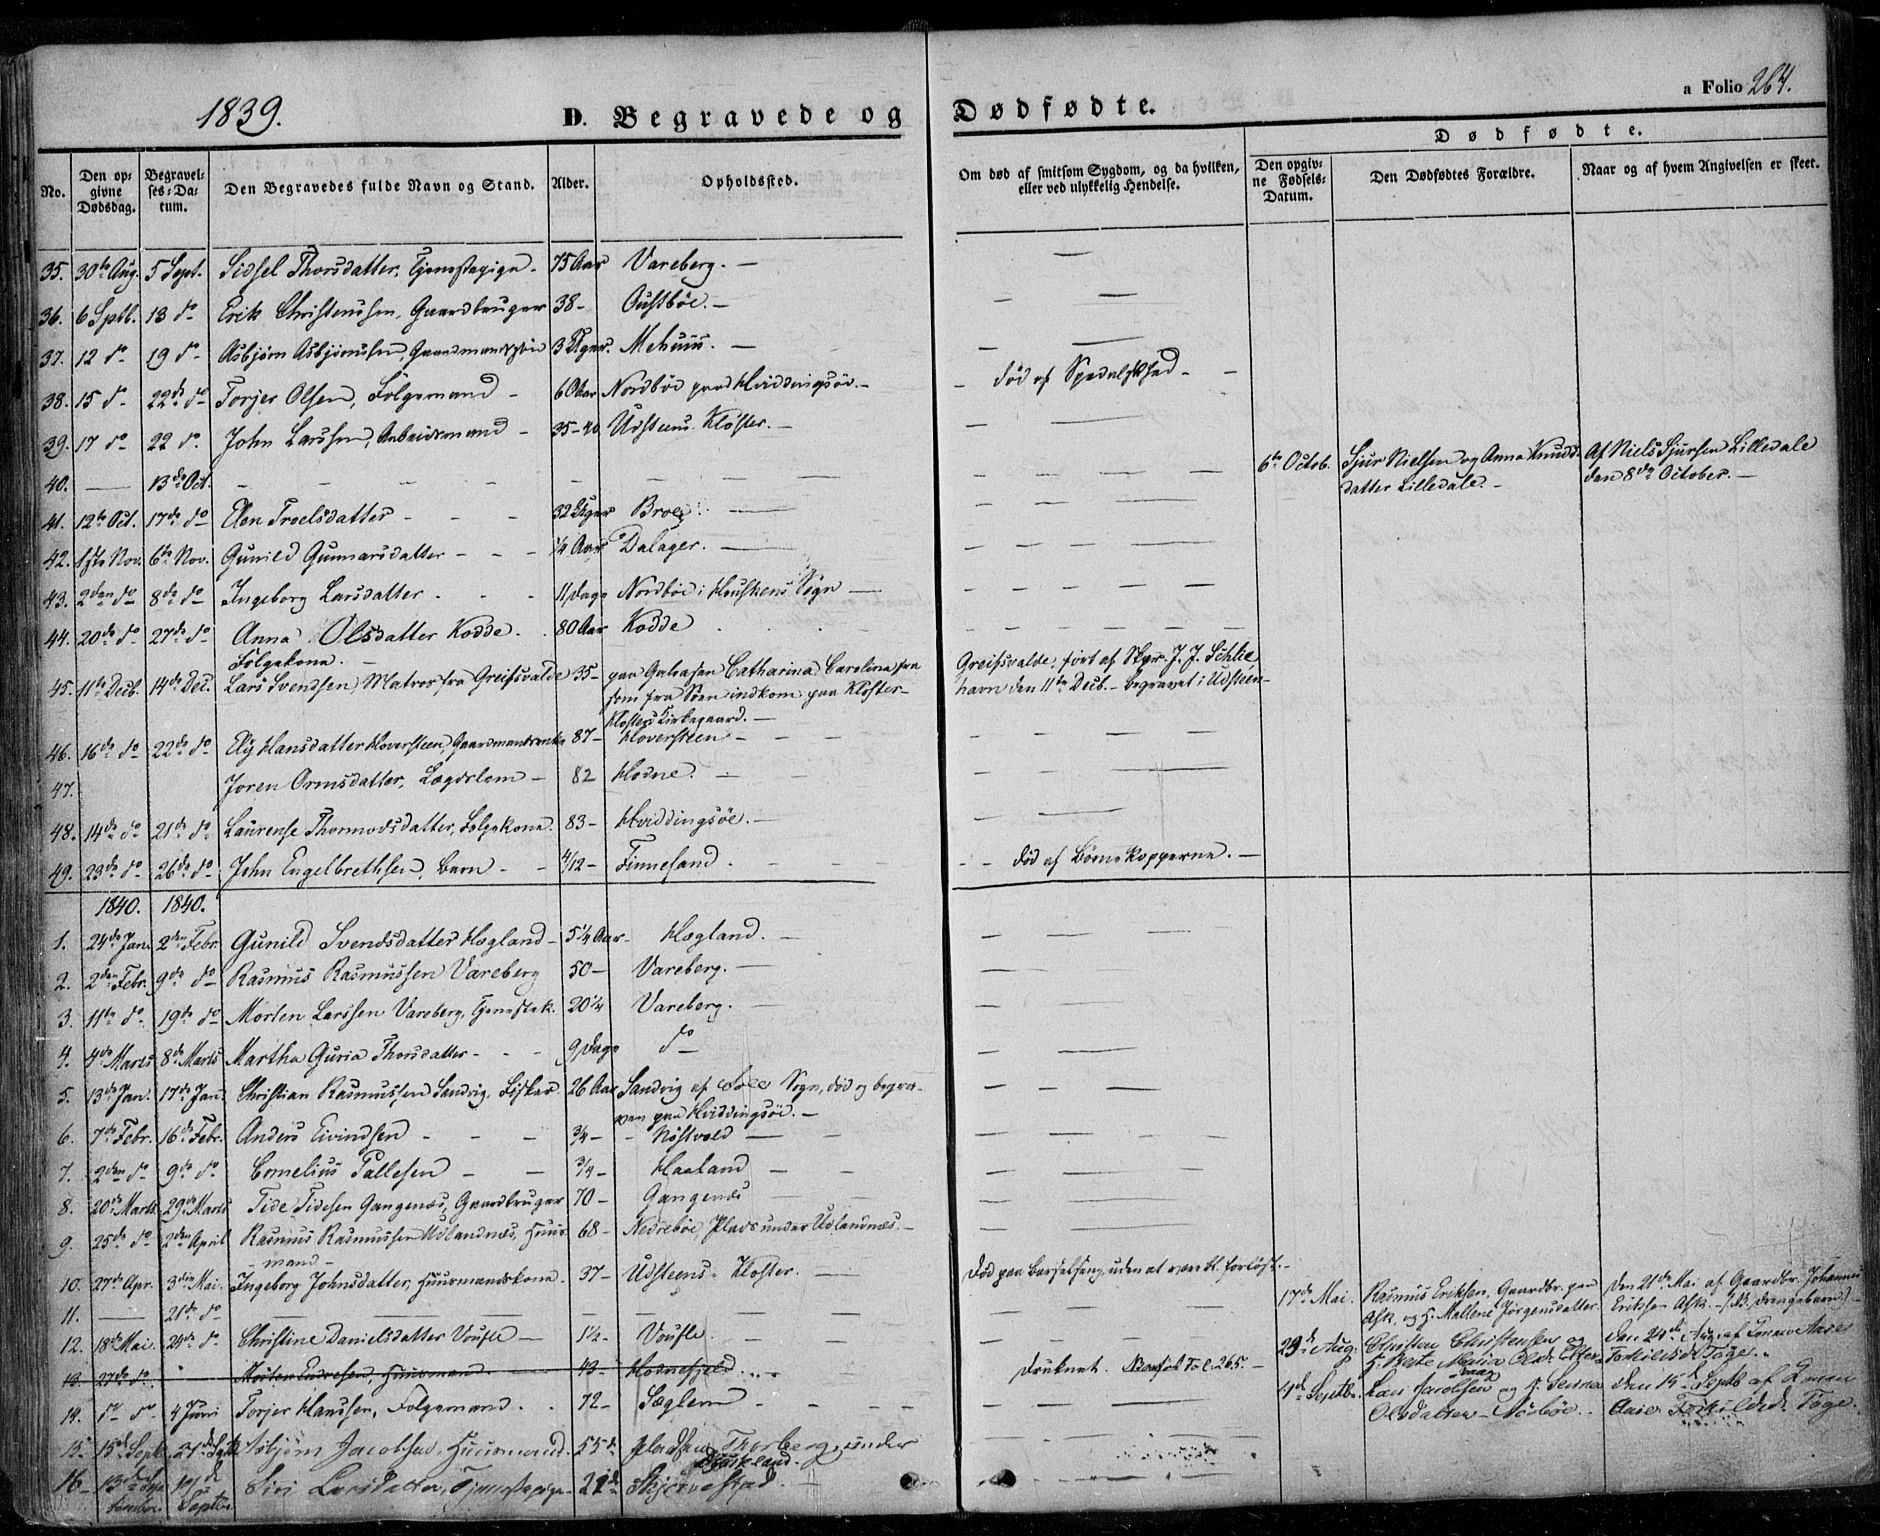 1839. D. Begravede og Dødfødte. a Folio 264.
Dødfødte.
No. Den opgivne Dødsdag. Begravelses-Datum. Den Begravedes fulde Navn og Stand. Alder. Opholdssted. Om død af smitsom Sygdom, og da hvilken, eller ved ulykkelig Hendelse. Den opgivne Fødsels-Datum. Den Dødfødtes Forældre. Naar og af hvem Angivelsen er skeet.
35. 30te Aug. 5 Sept. Sidsel Thorsdatter, Tjenestepige - 75 Aar Vareberg. -
36. 6 Septb. 13 do Erik Christensen, Gaardbruger 38 - Austbøe. -
37. 12 do 19 do Asbjørn Asbjørnsen, Gaardmandssøn 3 Uger. Mehuus. -
38. 15 do 22de do Torjer Olsen, Følgemand - 60 Aar Nordbøe paa Hviddingsøe. - død af Spedalskhed -
39. 17 do 22 do. John Larssen, Arbeidsmand - 35-40 Udsteens Kloster. -
40. — 13de Oct. - - - 6te Octob. Sjur Nielsen og Anna Knuds- Af Niels Sjursen Lilledale
datter Lilledale. - den 8de October. -
41. 12te Oct. 17de do Elen Troelsdatter - - - 32 Uger Broe. —
42. 1ste Nov. 6te Nov. Gunild Gunnarsdatter - - - 1/4 Aar Dalager. —
43. 2den do 8de do Ingeborg Larsdatter - - - 11 Dage Nordbøe i Hauskens Sogn —
44. 20de do 27de do Anna Olsdatter Kodde. 80 Aar Kodde
Følgekone. -
45. 11te Decb. 14de Dec. Lars Svendsen, Matros fra Greifsvalde 35 - paa Galeasen Catharina Carolina fra Greifsvalde, ført af Skpr. J. J. Schlie,
som fra Søen indkom paa Kloster- havn den 11te Decb. - begravet i Udsteen-
Klosters Kirkegaard. -
46. 16de do 22de do Eli Hansdatter Hoversteen, Gaardmandsenke 87 - Hoversteen -
47. Joren Ormsdatter, Lægdslem - 82 Hodne. -
48. 14de do 21de do Laurense Thormodsdatter, Følgekone. 83 - Hviddingsøe. -
49. 23de do 26de do John Engelbrethsen, barn - - 4/12 - Finnesand. - - - død af Børnekopperne. -
1840. 1840.
1. 24de Jan. 2den Febr. Gunild Svendsdatter Hogland - 5 1/4 Aar - Hogland. -
2. 2den Febr. 9de do Rasmus Rasmussen Vareberg 50 - Vareberg. -
3. 11te do 19de do Morten Larssen Vareberg, Tjenestek. 20 1/4 Vareberg. -
4. 4de Marts 8de Marts Martha Guria Thorsdatter - - - 9 Dage do
5. 13de Jan. 17de Jan. Christian Rasmussen Sandvig, Fisker 26 Aar Sandvig af Sogn, død og begra-
ven paa Hviddingsøe. -
6. 7de Febr. 16de Febr. Anders Eivindsen - - - 3/4 - - Nøstvold —
7. 2den do 9de do. Cornelius Pallesen - - 3/4 - Haaland -
8. 20de Marts 29de Marts Tide Tidesen Gangenæs, Gaardbruger 70 - Gangenæs
9. 25de do 2den April Rasmus Rasmussen Udlandnæs, Huus- 68 - Nedrebøe, Plads under Udlandnæs. -
mand -
10. 27de Apr. 3die Mai. Ingeborg Johnsdatter, Huusmandskone - 37 - Udsteens Kloster. - Død paa Barselseng, uden at være bl. forløst. -
11. — 21de do — 17de Mai. Rasmus Eriksen, Gaardbr. paa Den 21de Mai af Gaardbr. Johannes
Ask, og H. Mallene Jørgensdatter. Eriksen Ask. -
12. 18de Mai. 24de do. Christine Danielsdatter Voufle — 1 1/2 - Voufle. 23de Aug. Christen Christensen og Den 24de Aug. af
13. 27de do. Morten Endresen, Huusmand 43 - Hodnefjeld. Druknet. Fol. 265. - Torkildsd. Toge. -
14. do do 4 Juni Torjer Hanssen, Følgemand. 72 - Sæglem 4de Septb. Lars Jacobsen og H. Serina Den 15de Septb. af
Olsdatter - Nørbøe. Torkildsd. Toge.
15. 15de Sept. 21de Sept. Asbjørn Jacobsen, Huusmand 55 Pladsen Thorberg under
Hauskeland.
16 - 13de Sep- 19de Siri Larsdatter, Tjenestepige - 22 Skjervestad.
tember Septbr.